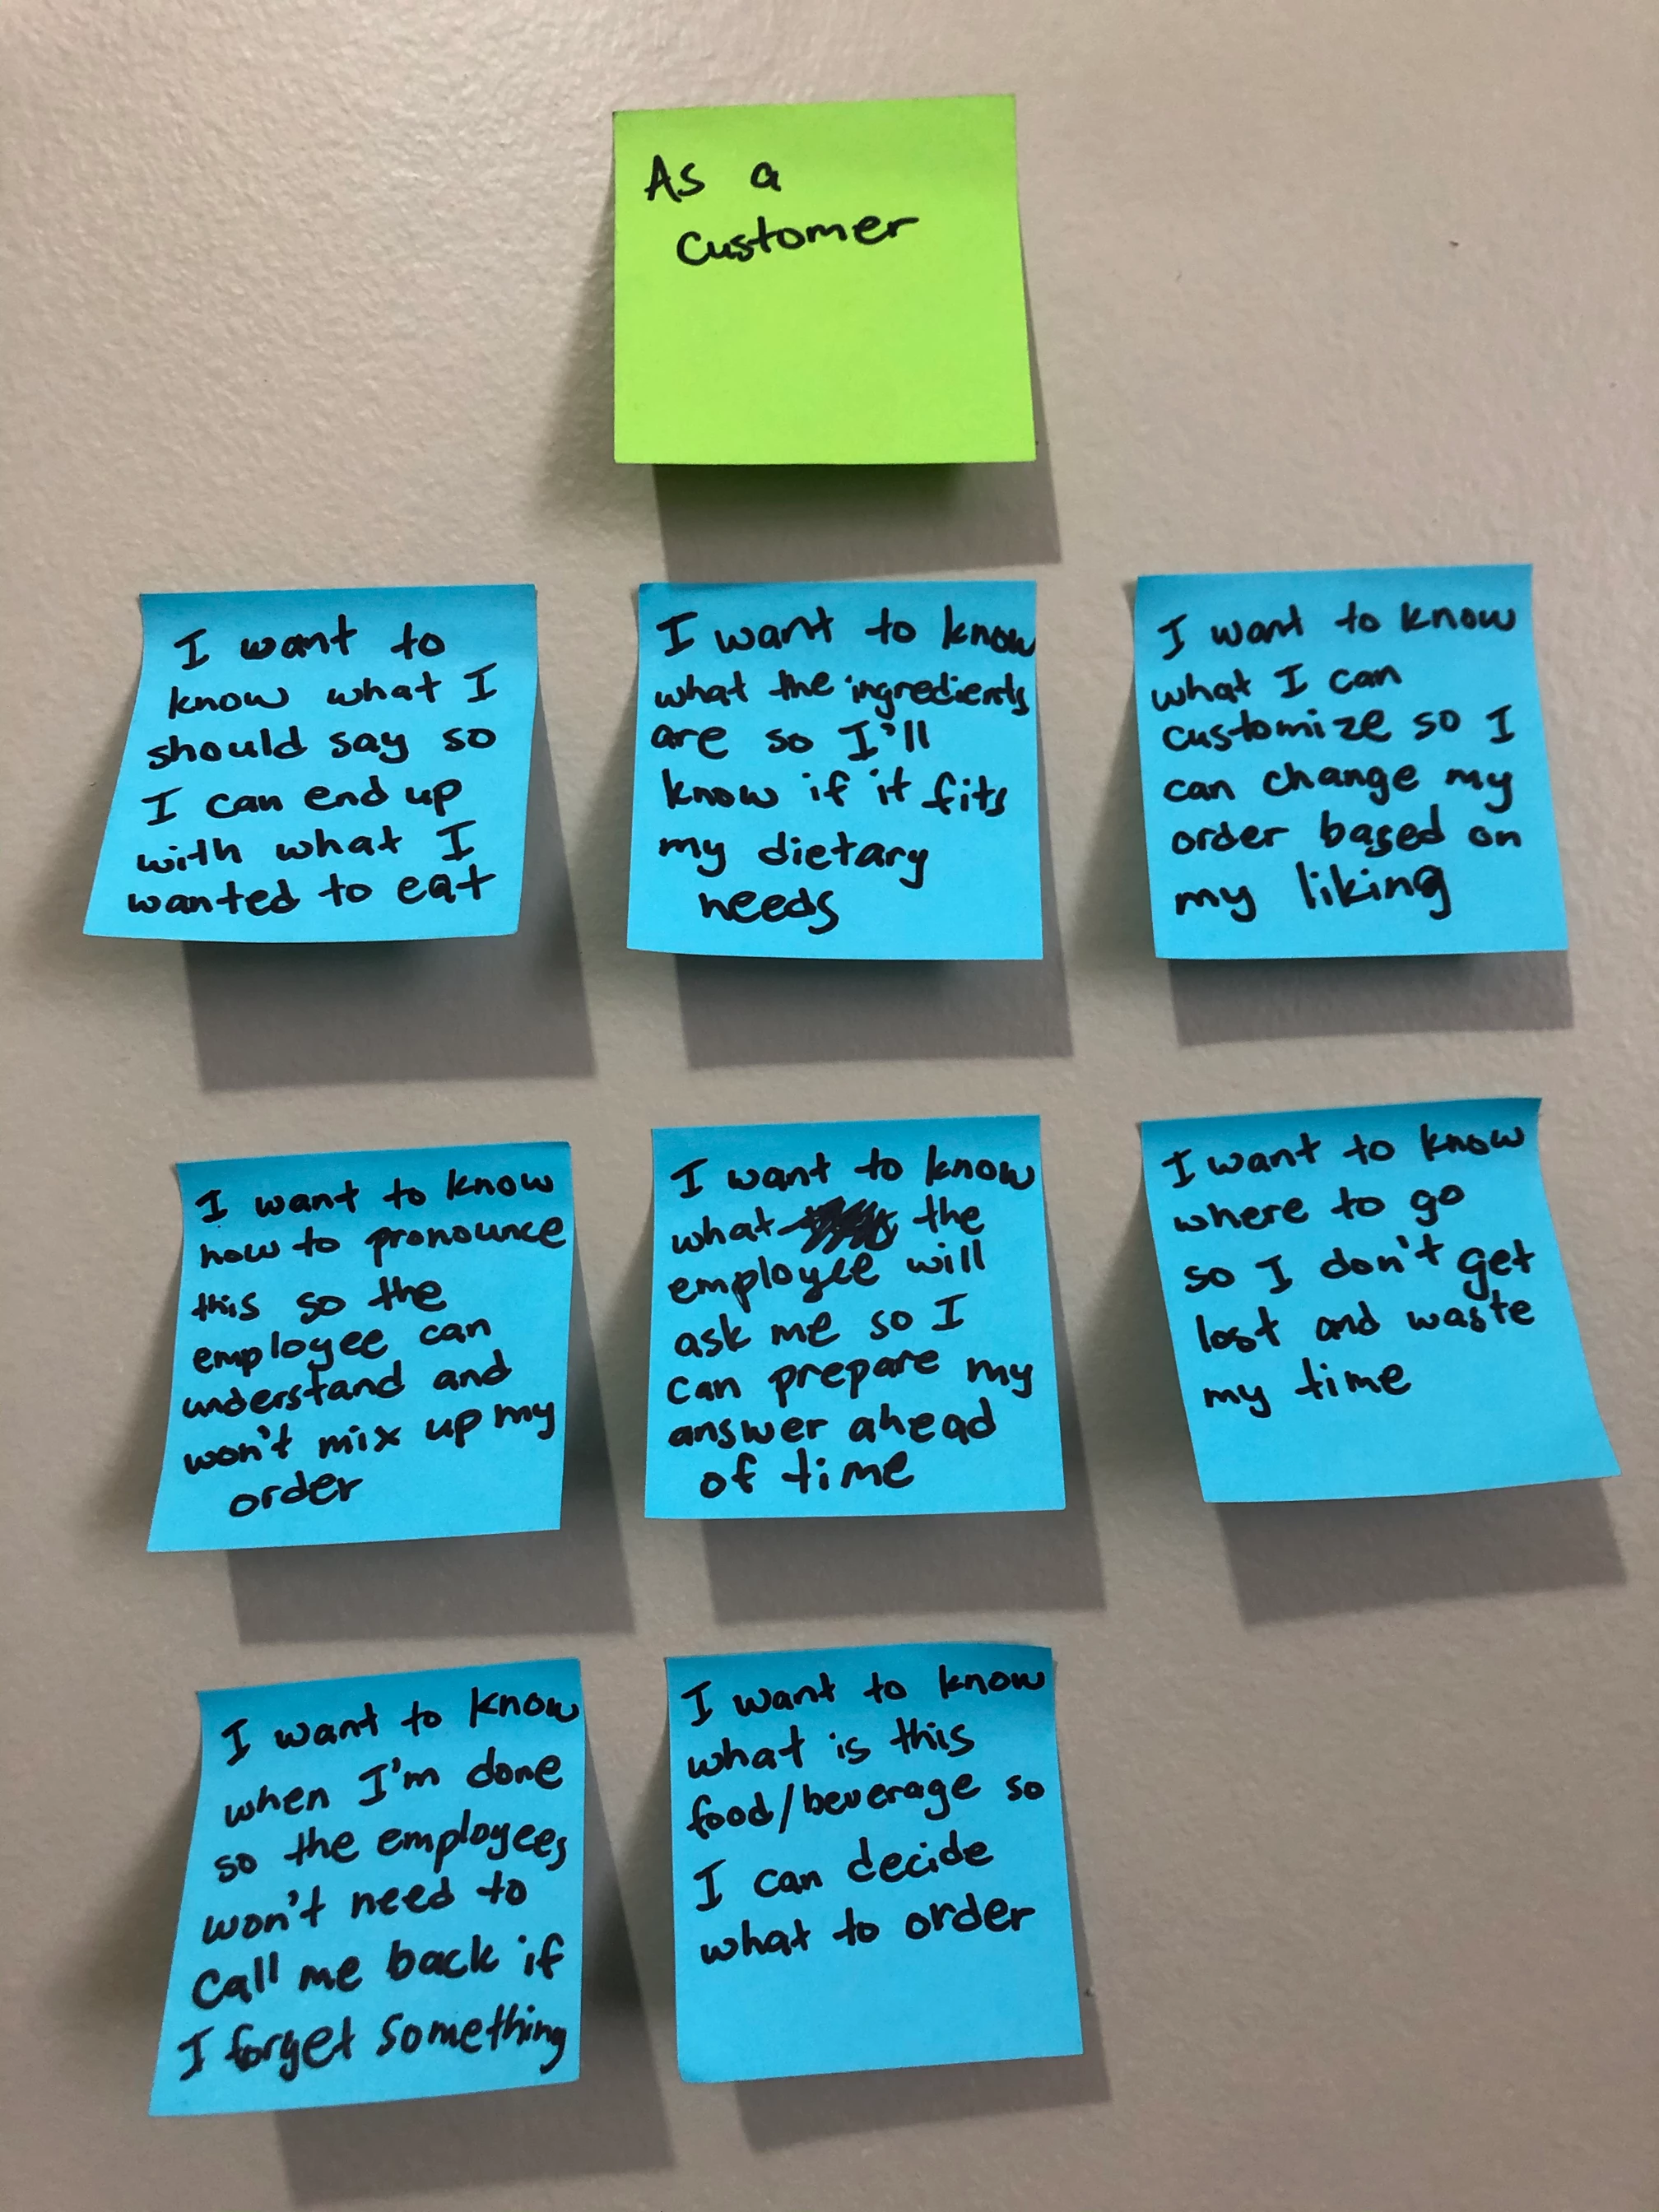 As a
Customer
I want to
know what I
should say so
I can end up
with what I
wanted to eat
I want to know
what the ingredients
are so I'll
know if it fits
my dietary
needs
I want to know
what I can
customize so I
can change my
order based on
my liking
I want to know
how to pronounce
this so the
employee can
understand and
won't mix up my
order
I want to know
what the
employee will
ask me so I
can prepare my
answer ahead
of time
I want to know
where to go
so I don't get
lost and waste
my time
I want to know
when I'm done
so the employees
won't need to
Call me back if
I forget something
I want to know
what is this
food/beverage so
I can decide
what to order